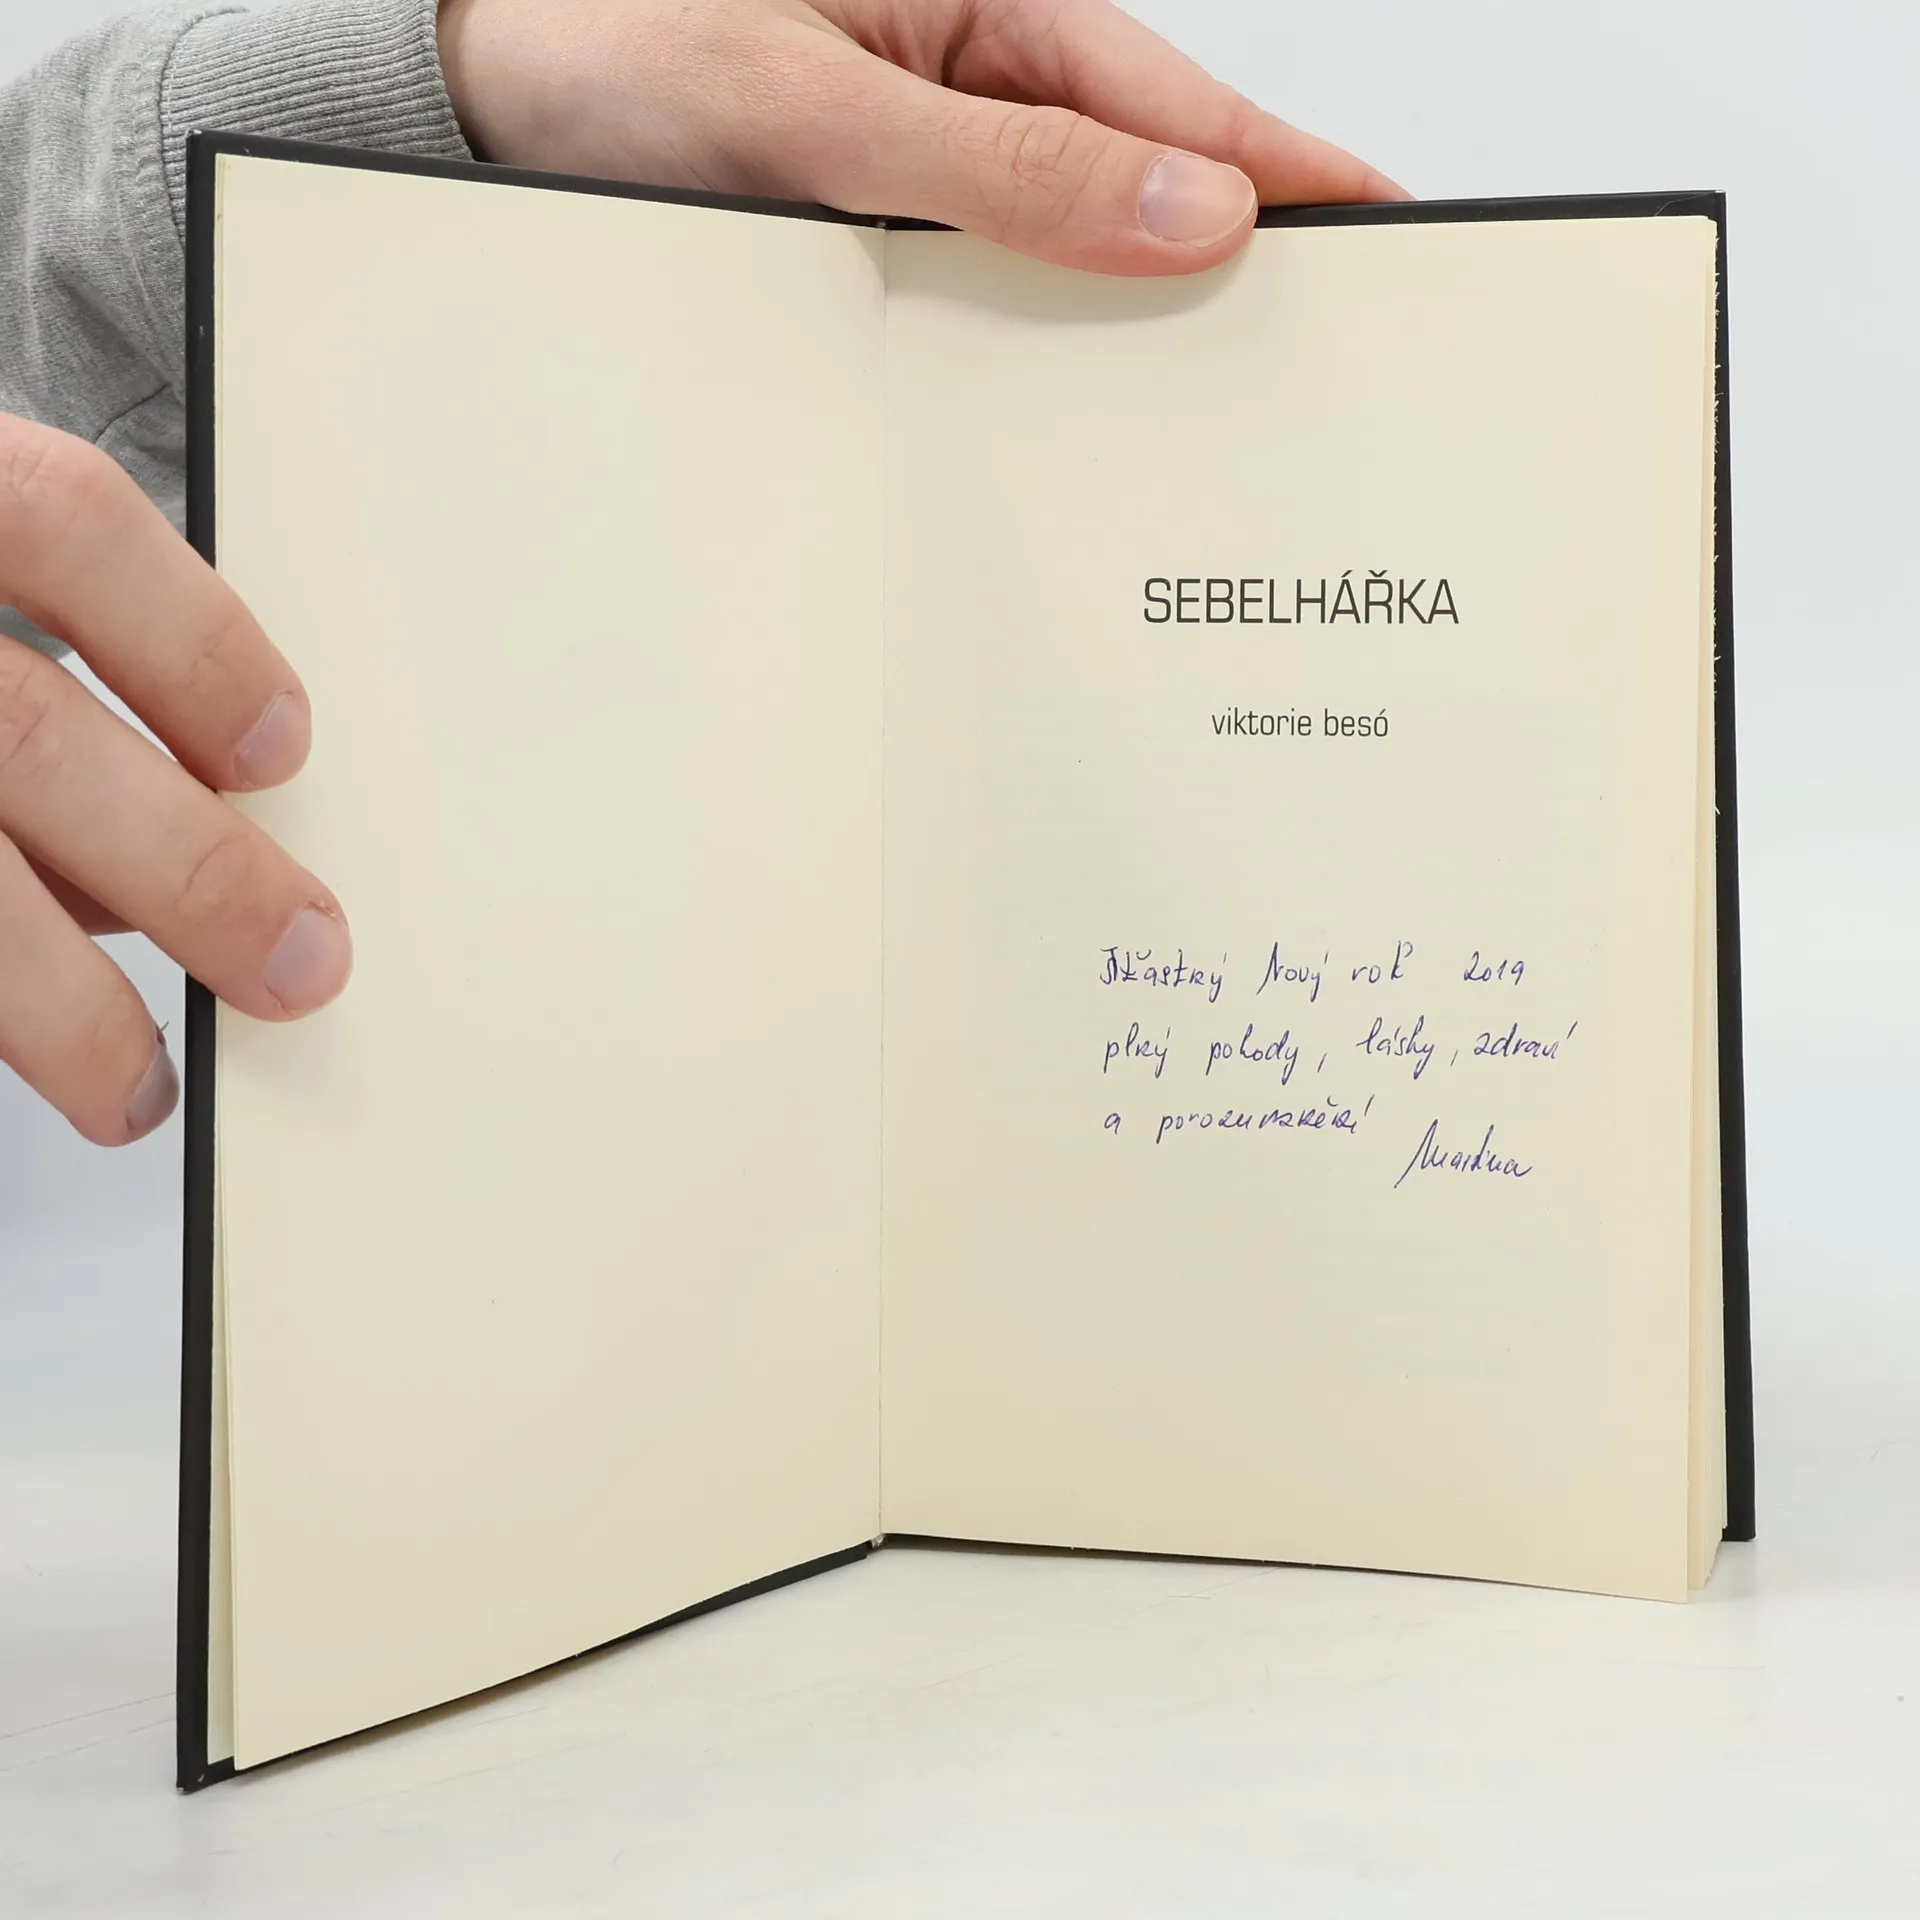 SEBELHÁŘKA
viktorie besó
Šťastný Nový rok 2019
plný pohody, lásky, zdraví
a porozumnění
Martina